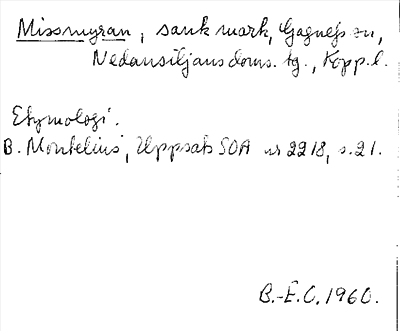 Missmyran, sank mark, Gagnefs sn,
Nedansiljans doms. tg., Kopp. l.
Etymologi.
B. Montelius, Uppsats SOA nr 2218, s. 21.
B.-E.O. 1960.